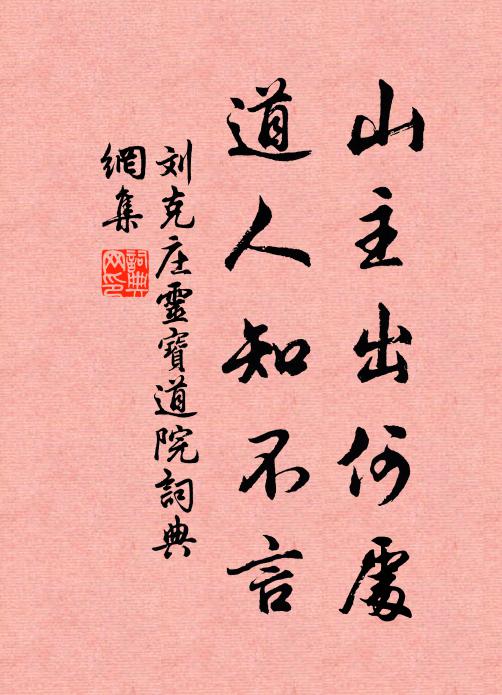 山主出何處
道人知不言
刘克庄靈寶道院詞典
網集
詞典
网印